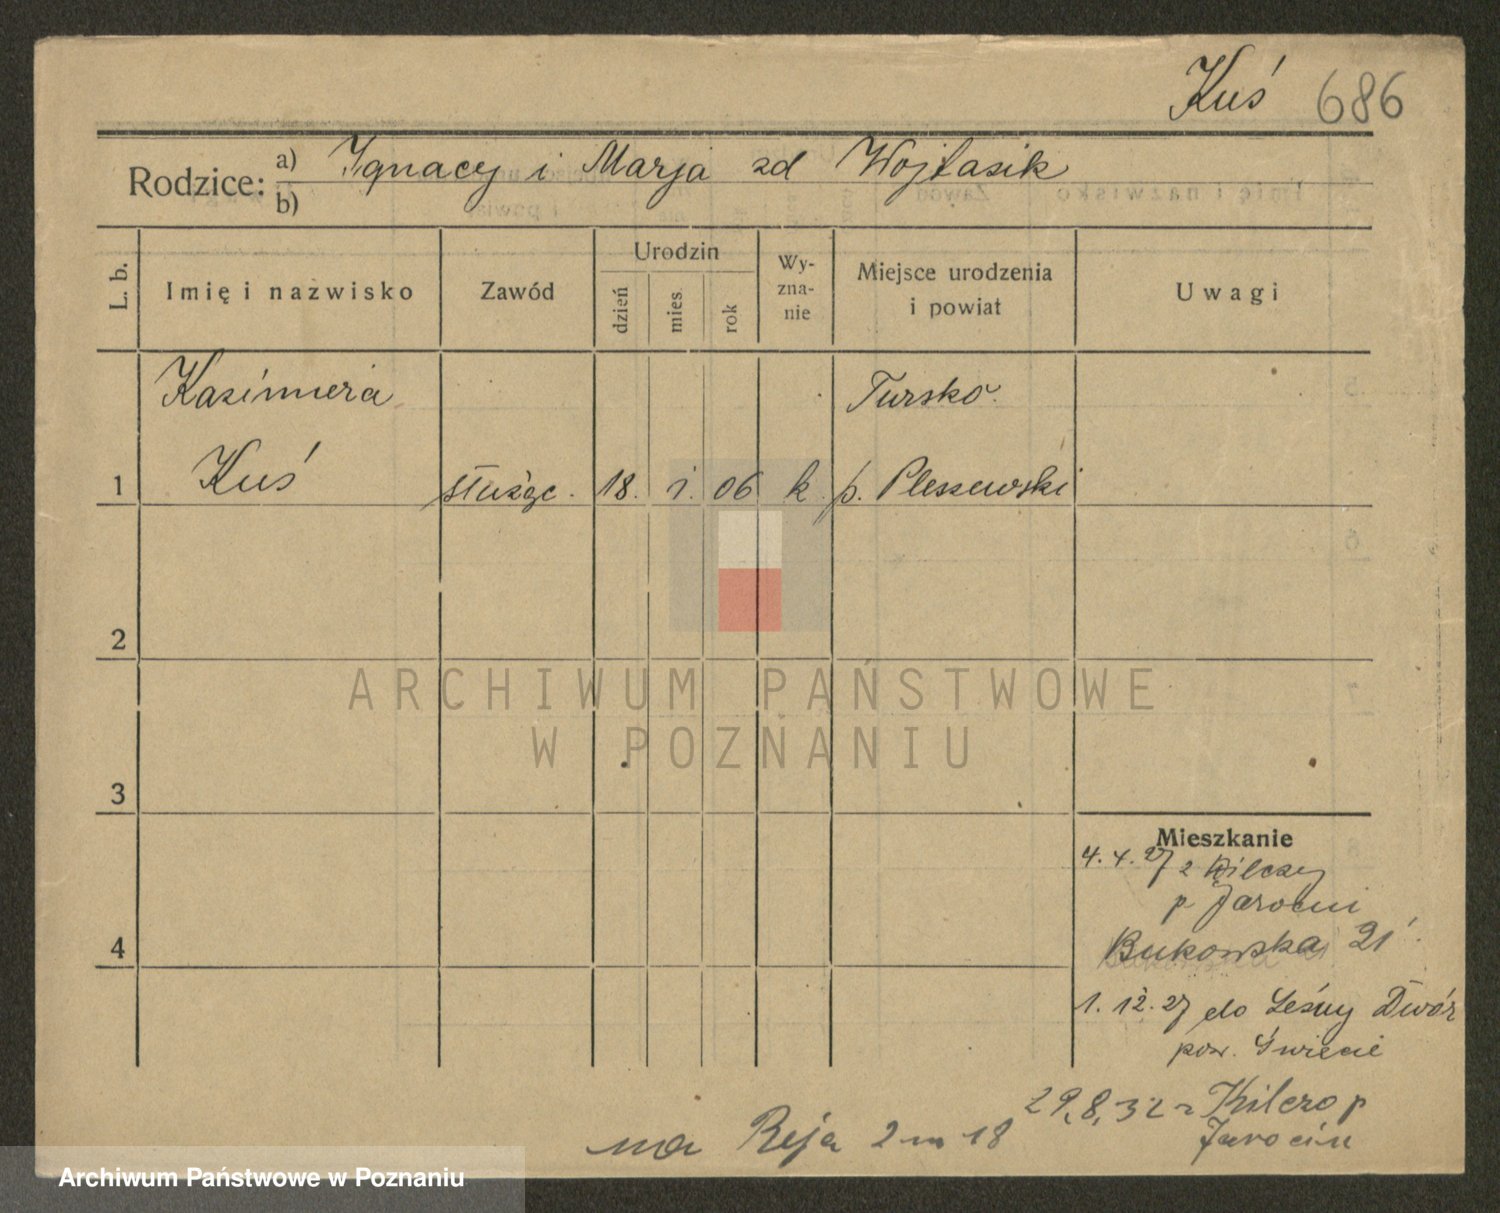 Kuś 686
Rodzice: a) Ignacy i Marja zd Wojtasik
b)
L. b. Imię i nazwisko Zawód Urodzin dzień mies. rok Wy-zna-nie Miejsce urodzenia i powiat Uwagi
Kazimiera Tursko
1 Kuś służąc. 18. 1. 06 k. p. Pleszewski
2
3
4
Mieszkanie
4. 4. 27 z
p Jarocin
Bukowska 21
1. 12. 27 do Leśny Dwór
pow. Świecie
29,8,32 z
Jarocin
na Reja 2 m 18
ARCHIWUM PAŃSTWOWE
W POZNANIU
Archiwum Państwowe w Poznaniu